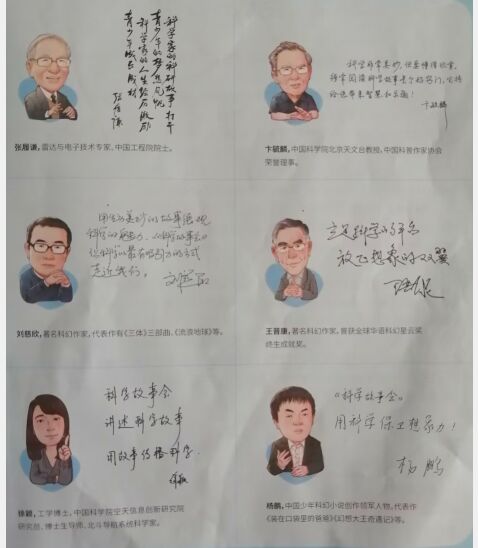 科学家的科研故事打开
青少年的梦想之帆
科学家的人生经历激励
青少年成长成材
张履谦
张履谦，雷达与电子技术专家、中国工程院院士。
科学非常美妙，但要懂得欣赏。
卞毓麟
卞毓麟，中国科学院北京天文台教授，中国科普作家协会
荣誉理事。
用生动美妙的故事展现
科学的魅力，《科学故事会》
让科学以最有吸引力的方式
走近我们。
刘慈欣
刘慈欣，著名科幻作家，代表作有《三体》三部曲、《流浪地球》等。
立足科学的
放飞想象的双翼
王晋康
王晋康，著名科幻作家，曾获全球华语科幻星云奖
终生成就奖。
科学故事会
讲述科学故事
用故事传播科学
徐颖
徐颖，工学博士，中国科学院空天信息创新研究院
研究员、博士生导师、北斗导航系统科学家。
《科学故事会》
用科学保卫想象力！
杨鹏
杨鹏，中国少年科幻小说创作领军人物，代表作
《装在口袋里的爸爸》《幻想大王奇遇记》等。